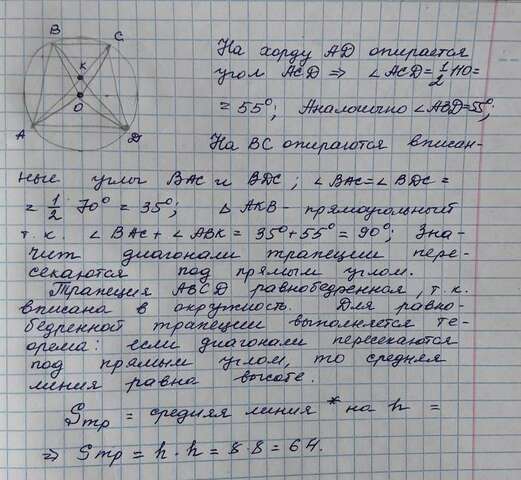 B
C
K
O
A
D
На хорду AD опирается
угол ACD ⇒ ∠ACD = 1/2 110 =
= 55°; Аналогично ∠ABD = 55°;
На BC опираются вписан-
ные углы BAC и BDC; ∠BAC = ∠BDC =
= 1/2 70° = 35°; Δ AKB - прямоугольный
т. к. ∠BAC + ∠ABK = 35° + 55° = 90°; Зна-
чит диагонали трапеции пере-
секаются под прямым углом.
Трапеция ABCD равнобедренная, т. к.
вписана в окружность. Для равно-
бедренной трапеции выполняется те-
орема: если диагонали пересекаются
под прямым углом, то средняя
линия равна высоте.
Sтр = средняя линия * на h =
⇒ Sтр = h · h = 8 · 8 = 64.